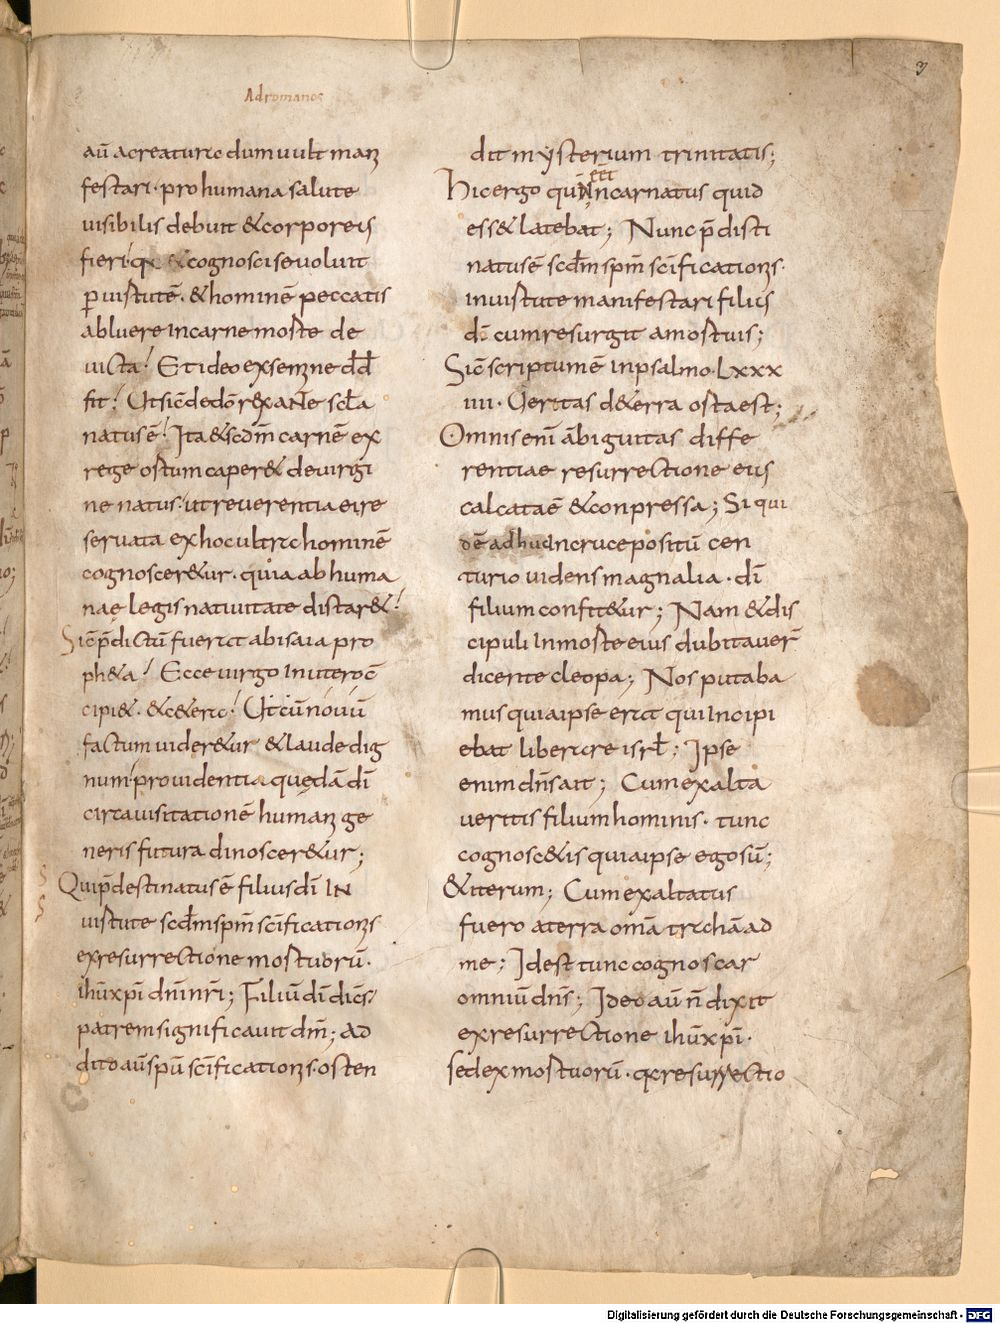 Ad romanos
3
aū a creatura dum uult mani
festari· pro humana salute
uisibilis debuit & corporeis
fieri· q̄ & cognosci se uoluit
ꝑ uirtutē· & hominē peccatis
abluere In carne morte de
uicta! Et ideo ex semine dd̄
fit! Ut sic̄ de dō rex ante scl̄a
natus ē! Ita & scdm̄ carnē ex
rege ortum caper& de uirgi
ne natus· ut reuerentia ei re
seruata ex hoc ultra hominē
cognoscer&ur· quia ab huma
nae legis natiuitate distar&!
Sic̄ p̄dictū fuerat ab isaia pro
ph&a! Ecce uirgo In utero c̄
cipi&· & c&era! Ut cū nouū
factum uider&ur & laude dig
num· prouidentia quędā dī
circa uisitationē humani ge
neris futura dinoscer&ur;
Qui p̄destinatus ē filius dī IN
uirtute scdm̄ spm̄ sc̄ificationis
ex resurrectione mortuorū·
ihū xp̄i dn̄i nr̄i; Filiū dī dicēs
patrem significauit dm̄; Ad
dito aū spū sc̄ificationis· osten
dit mysterium trinitatis;
Hic ergo qui Incarnatus quid
ess& latebat; Nunc p̄disti
natus ē scdm̄ spm̄ sc̄ificationis·
in uirtute manifestari filius
dī cum resurgit a mortuis;
Sic̄ scriptum ē In psalmo· Lxxx
IIII· Ueritas d& erra orta est;
Omnis enī ābiguitas diffe
rentiae resurrectione eius
calcata ē & conpressa; Si qui
dē adhuc In cruce positū cen
turio uidens magnalia· dī
filium confit&ur; Nam & dis
cipuli In morte eius dubitauer̄
dicente cleopa; Nos putaba
mus quia ipse erat qui Incipi
ebat liberare isrl̄; Ipse
enim dn̄s ait; Cum exalta
ueritis filium hominis· tunc
cognosc&is quia ipse ego sū;
& iterum; Cum exaltatus
fuero a terra omā traham ad
me; Id est tunc cognoscar
omniū dn̄s; Ideo aū n̄ dixit
ex resurrectione ihū xp̄i·
sed ex mortuorū· q̄ resurrectio
Digitalisierung gefördert durch die Deutsche Forschungsgemeinschaft - DFG